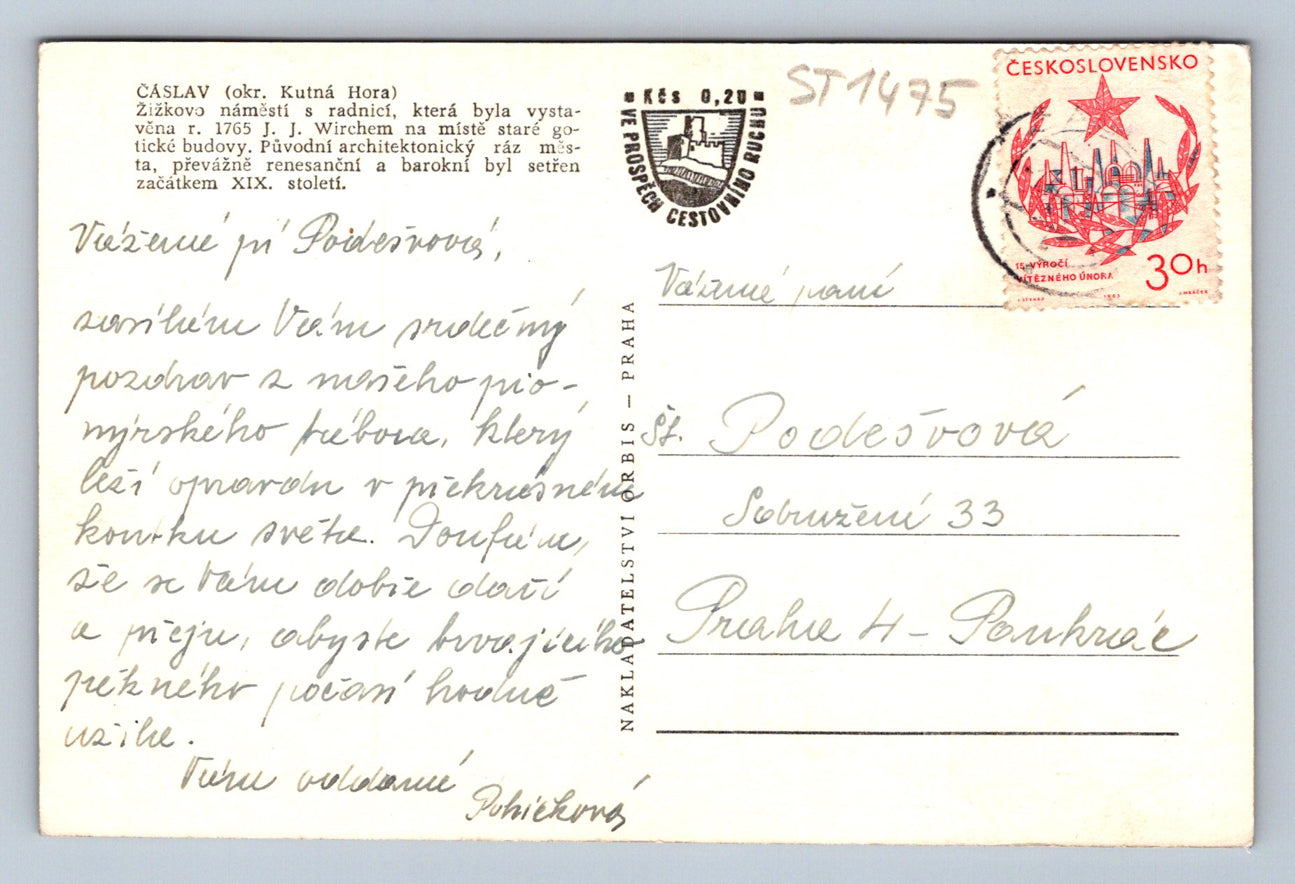 ČÁSLAV (okr. Kutná Hora)
Žižkovo náměstí s radnicí, která byla vysta-
věna r. 1765 J. J. Wirchem na místě staré go-
tické budovy. Původní architektonický ráz měs-
ta, převážně renesanční a barokní byl setřen
začátkem XIX. století.
Kčs 0,20
VE PROSPĚCH CESTOVNÍHO RUCHU
ST 1475
ČESKOSLOVENSKO
15. VÝROČÍ
VÍTĚZNÉHO ÚNORA
30h
1963
Vážená pí Podešvová,
zasílám Vám srdečný
pozdrav z našeho pio-
nýrského tábora, který
leží opravdu v překrásném
koutku světa. Doufám,
že se Vám dobře daří
a přeji, abyste trvajícího
pěkného počasí hodně
užila.
Vám oddaná
NAKLADATELSTVÍ ORBIS — PRAHA
Vážená paní
Št. Podešvová
Sdružení 33
Praha 4 - Pankrác